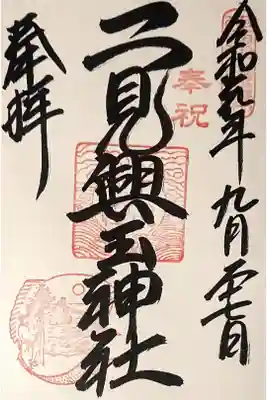 令和元年九月二十七日
奉祝
二見興玉神社
奉拝